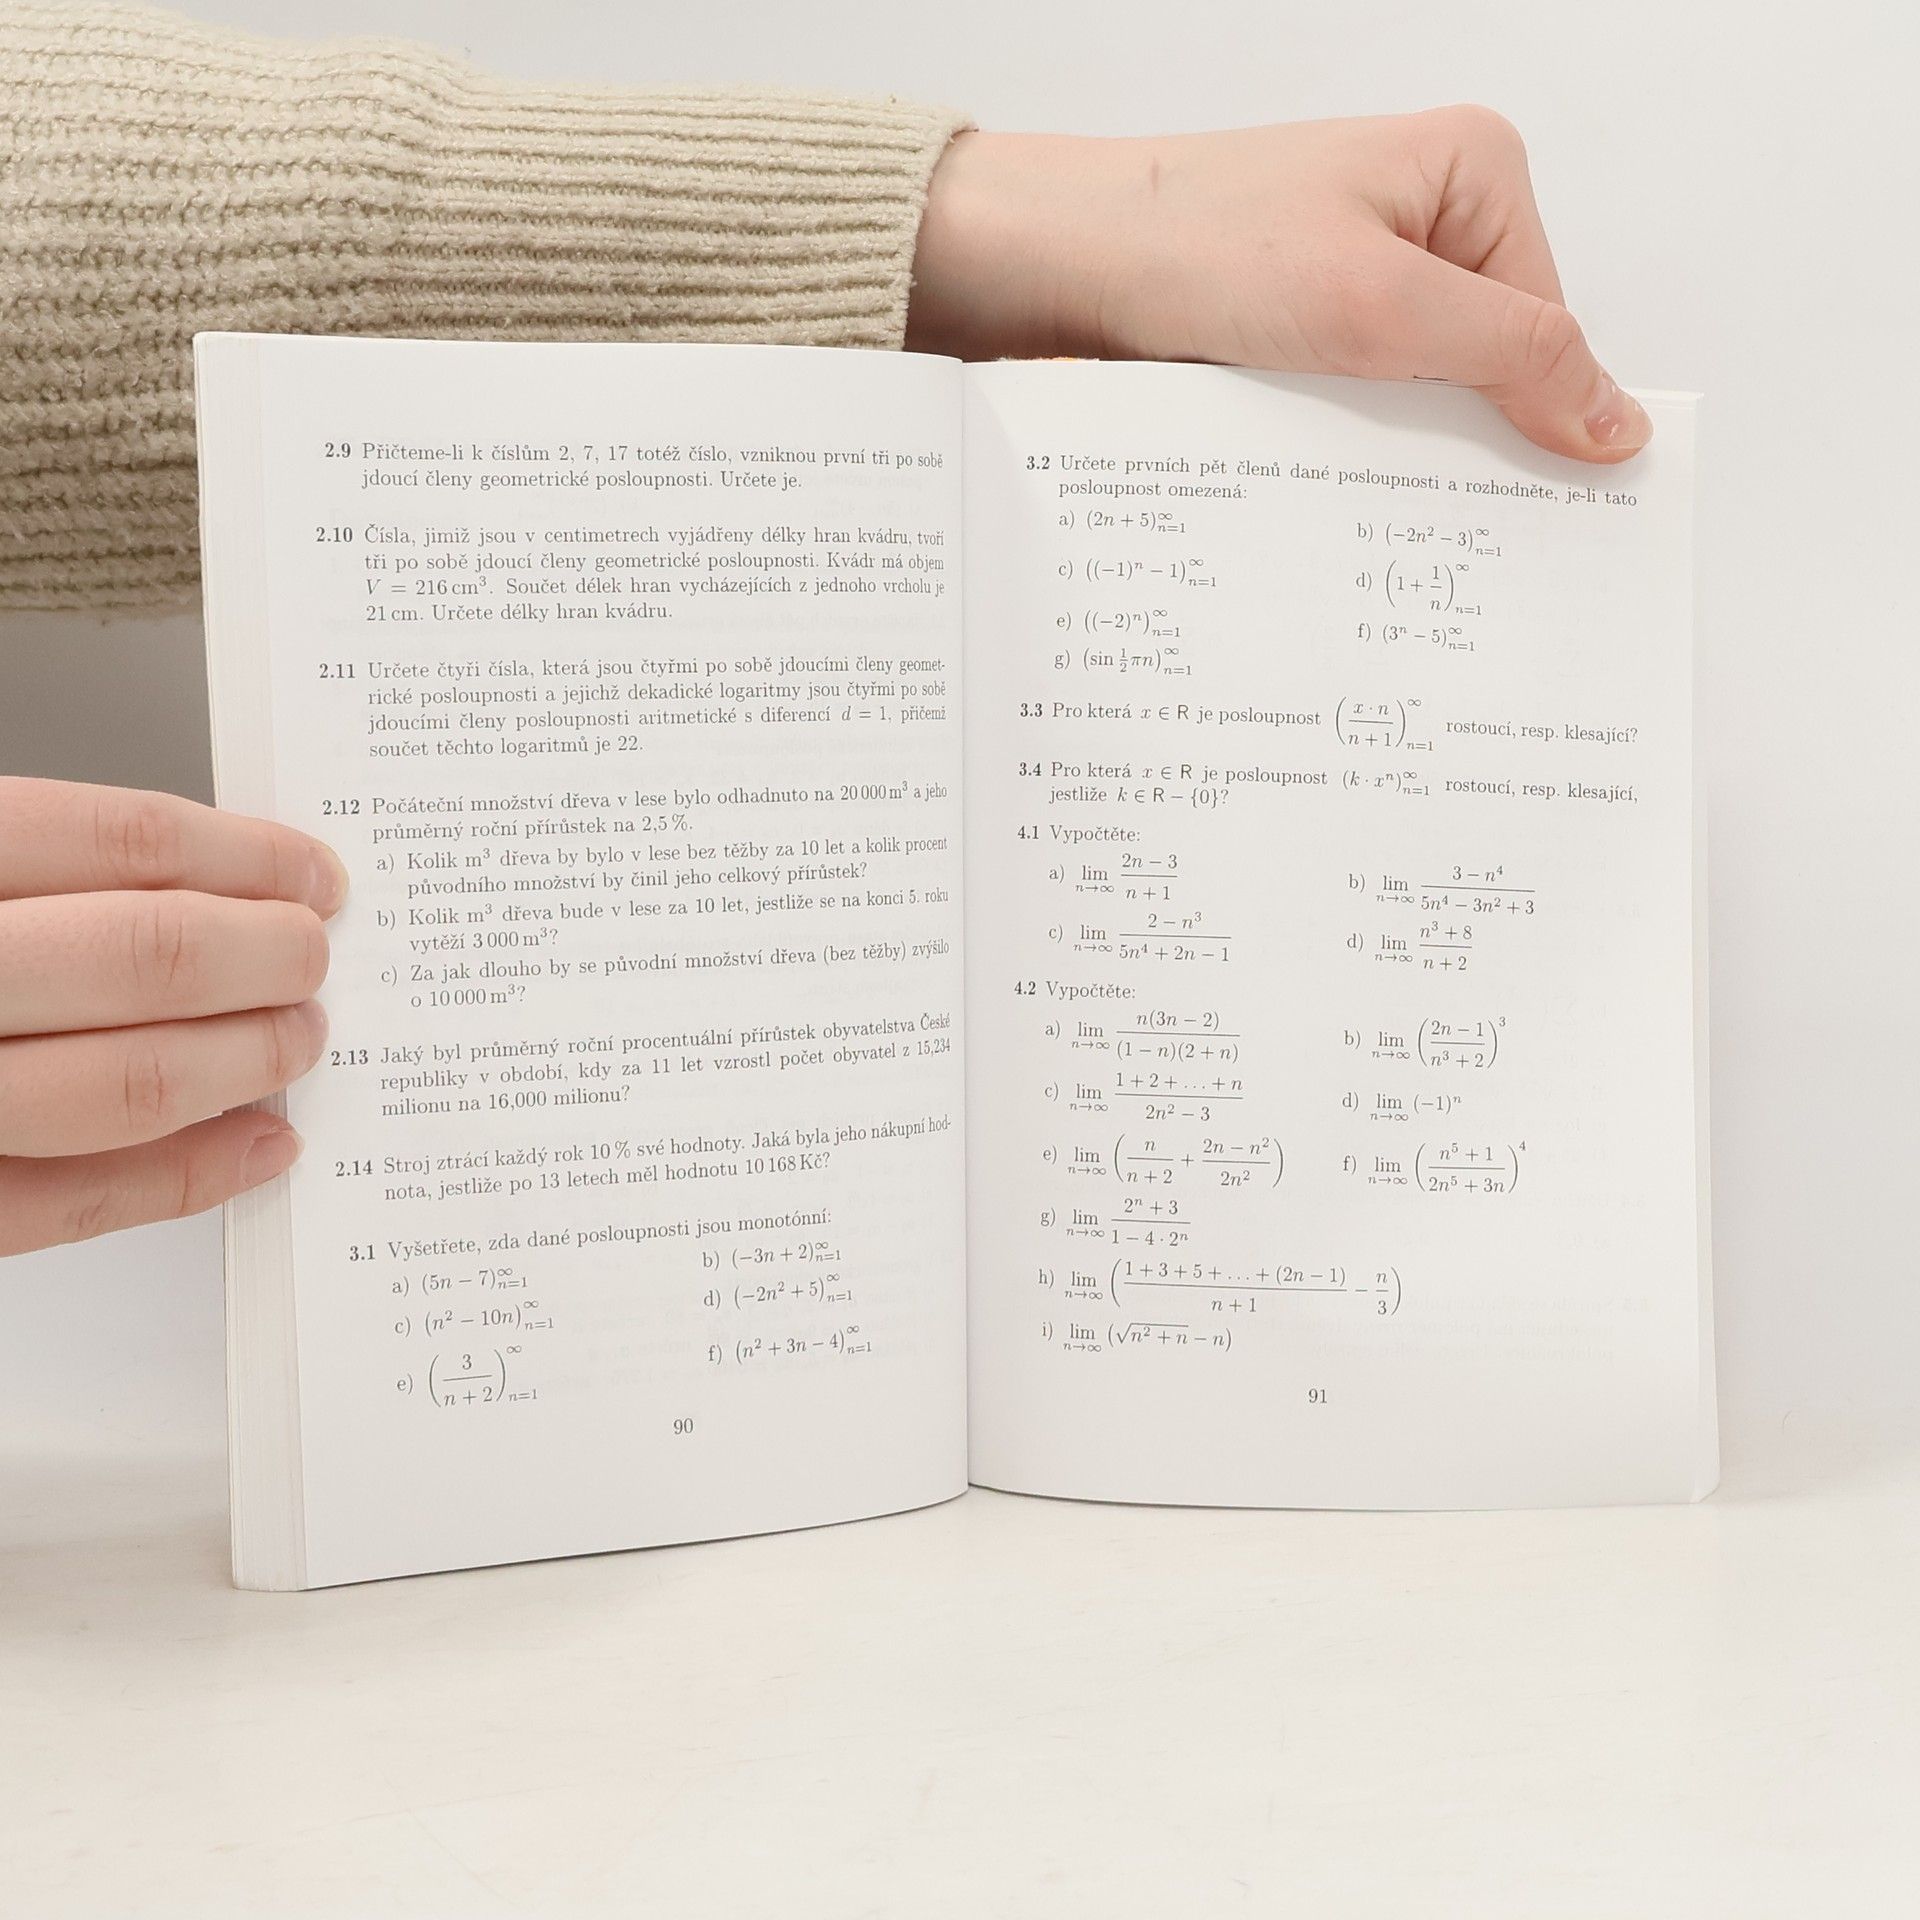 2.9 Přičteme-li k číslům 2, 7, 17 totéž číslo, vzniknou první tři po sobě
jdoucí členy geometrické posloupnosti. Určete je.
2.10 Čísla, jimiž jsou v centimetrech vyjádřeny délky hran kvádru, tvoří
tři po sobě jdoucí členy geometrické posloupnosti. Kvádr má objem
V = 216 cm³. Součet délek hran vycházejících z jednoho vrcholu je
21 cm. Určete délky hran kvádru.
2.11 Určete čtyři čísla, která jsou čtyřmi po sobě jdoucími členy geomet-
rické posloupnosti a jejichž dekadické logaritmy jsou čtyřmi po sobě
jdoucími členy posloupnosti aritmetické s diferencí d = 1, přičemž
součet těchto logaritmů je 22.
2.12 Počáteční množství dřeva v lese bylo odhadnuto na 20 000 m³ a jeho
průměrný roční přírůstek na 2,5 %.
a) Kolik m³ dřeva by bylo v lese bez těžby za 10 let a kolik procent
původního množství by činil jeho celkový přírůstek?
b) Kolik m³ dřeva bude v lese za 10 let, jestliže se na konci 5. roku
vytěží 3 000 m³?
c) Za jak dlouho by se původní množství dřeva (bez těžby) zvýšilo
o 10 000 m³?
2.13 Jaký byl průměrný roční procentuální přírůstek obyvatelstva České
republiky v období, kdy za 11 let vzrostl počet obyvatel z 15,234
milionu na 16,000 milionu?
2.14 Stroj ztrácí každý rok 10 % své hodnoty. Jaká byla jeho nákupní hod-
nota, jestliže po 13 letech měl hodnotu 10 168 Kč?
3.1 Vyšetřete, zda dané posloupnosti jsou monotónní:
a) (5n − 7)_{n=1}^∞ b) (−3n + 2)_{n=1}^∞
c) (n² − 10n)_{n=1}^∞ d) (−2n² + 5)_{n=1}^∞
e) (3/(n + 2))_{n=1}^∞ f) (n² + 3n − 4)_{n=1}^∞
90
3.2 Určete prvních pět členů dané posloupnosti a rozhodněte, je-li tato
posloupnost omezená:
a) (2n + 5)_{n=1}^∞ b) (−2n² − 3)_{n=1}^∞
c) ((−1)ⁿ − 1)_{n=1}^∞ d) (1 + 1/n)_{n=1}^∞
e) ((−2)ⁿ)_{n=1}^∞ f) (3ⁿ − 5)_{n=1}^∞
g) (sin ½πn)_{n=1}^∞
3.3 Pro která x ∈ R je posloupnost (x · n/(n + 1))_{n=1}^∞ rostoucí, resp. klesající?
3.4 Pro která x ∈ R je posloupnost (k · xⁿ)_{n=1}^∞ rostoucí, resp. klesající,
jestliže k ∈ R − {0}?
4.1 Vypočtěte:
a) lim_{n→∞} (2n − 3)/(n + 1) b) lim_{n→∞} (3 − n⁴)/(5n⁴ − 3n² + 3)
c) lim_{n→∞} (2 − n³)/(5n⁴ + 2n − 1) d) lim_{n→∞} (n³ + 8)/(n + 2)
4.2 Vypočtěte:
a) lim_{n→∞} n(3n − 2)/((1 − n)(2 + n)) b) lim_{n→∞} ((2n − 1)/(n³ + 2))³
c) lim_{n→∞} (1 + 2 + ... + n)/(2n² − 3) d) lim_{n→∞} (−1)ⁿ
e) lim_{n→∞} (n/(n + 2) + (2n − n²)/(2n²)) f) lim_{n→∞} ((n⁵ + 1)/(2n⁵ + 3n))⁴
g) lim_{n→∞} (2ⁿ + 3)/(1 − 4 · 2ⁿ)
h) lim_{n→∞} ((1 + 3 + 5 + ... + (2n − 1))/(n + 1) − n/3)
i) lim_{n→∞} (√(n² + n) − n)
91